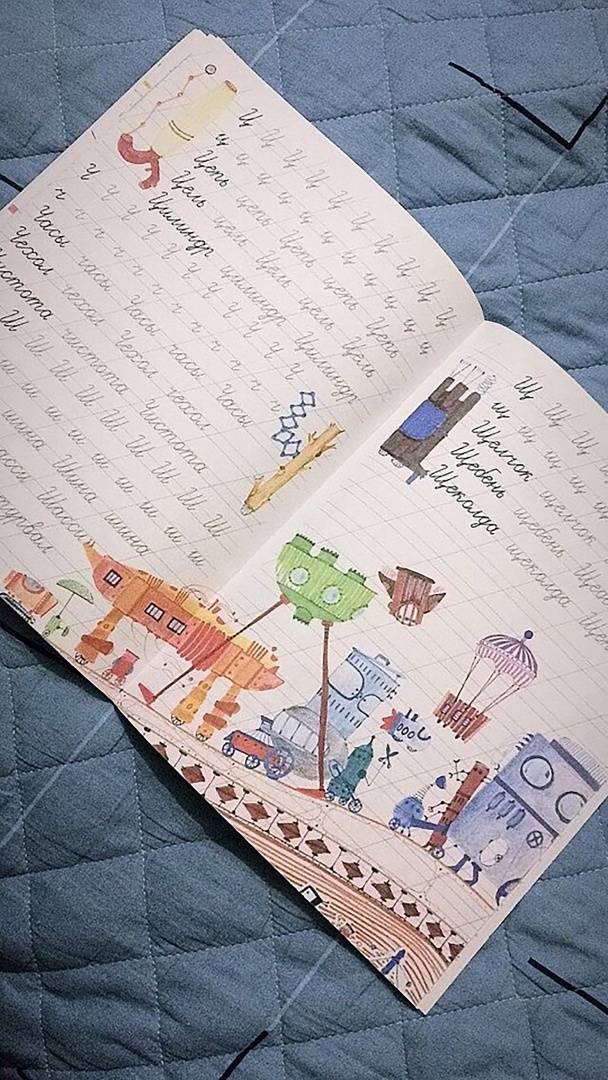 Ц Ц Ц Ц Ц Ц Ц Ц Ц
ц ц ц ц ц ц ц ц ц
Цепь цепь Цепь цепь Цепь
Цель цель Цель цель Цель
Цилиндр цилиндр Цилиндр
Ч Ч Ч Ч Ч Ч Ч Ч Ч
ч ч ч ч ч ч ч ч ч
Часы часы Часы часы Часы
Чехол чехол Чехол чехол
Чистота чистота Чистота
Ш Ш Ш Ш Ш Ш Ш Ш
ш ш ш ш ш ш ш ш
шина Шина шина
Шасси
Щ Щ Щ Щ
щ щ щ щ
Щелчок щелчок
Щебень щебень
Щеколда щеколда